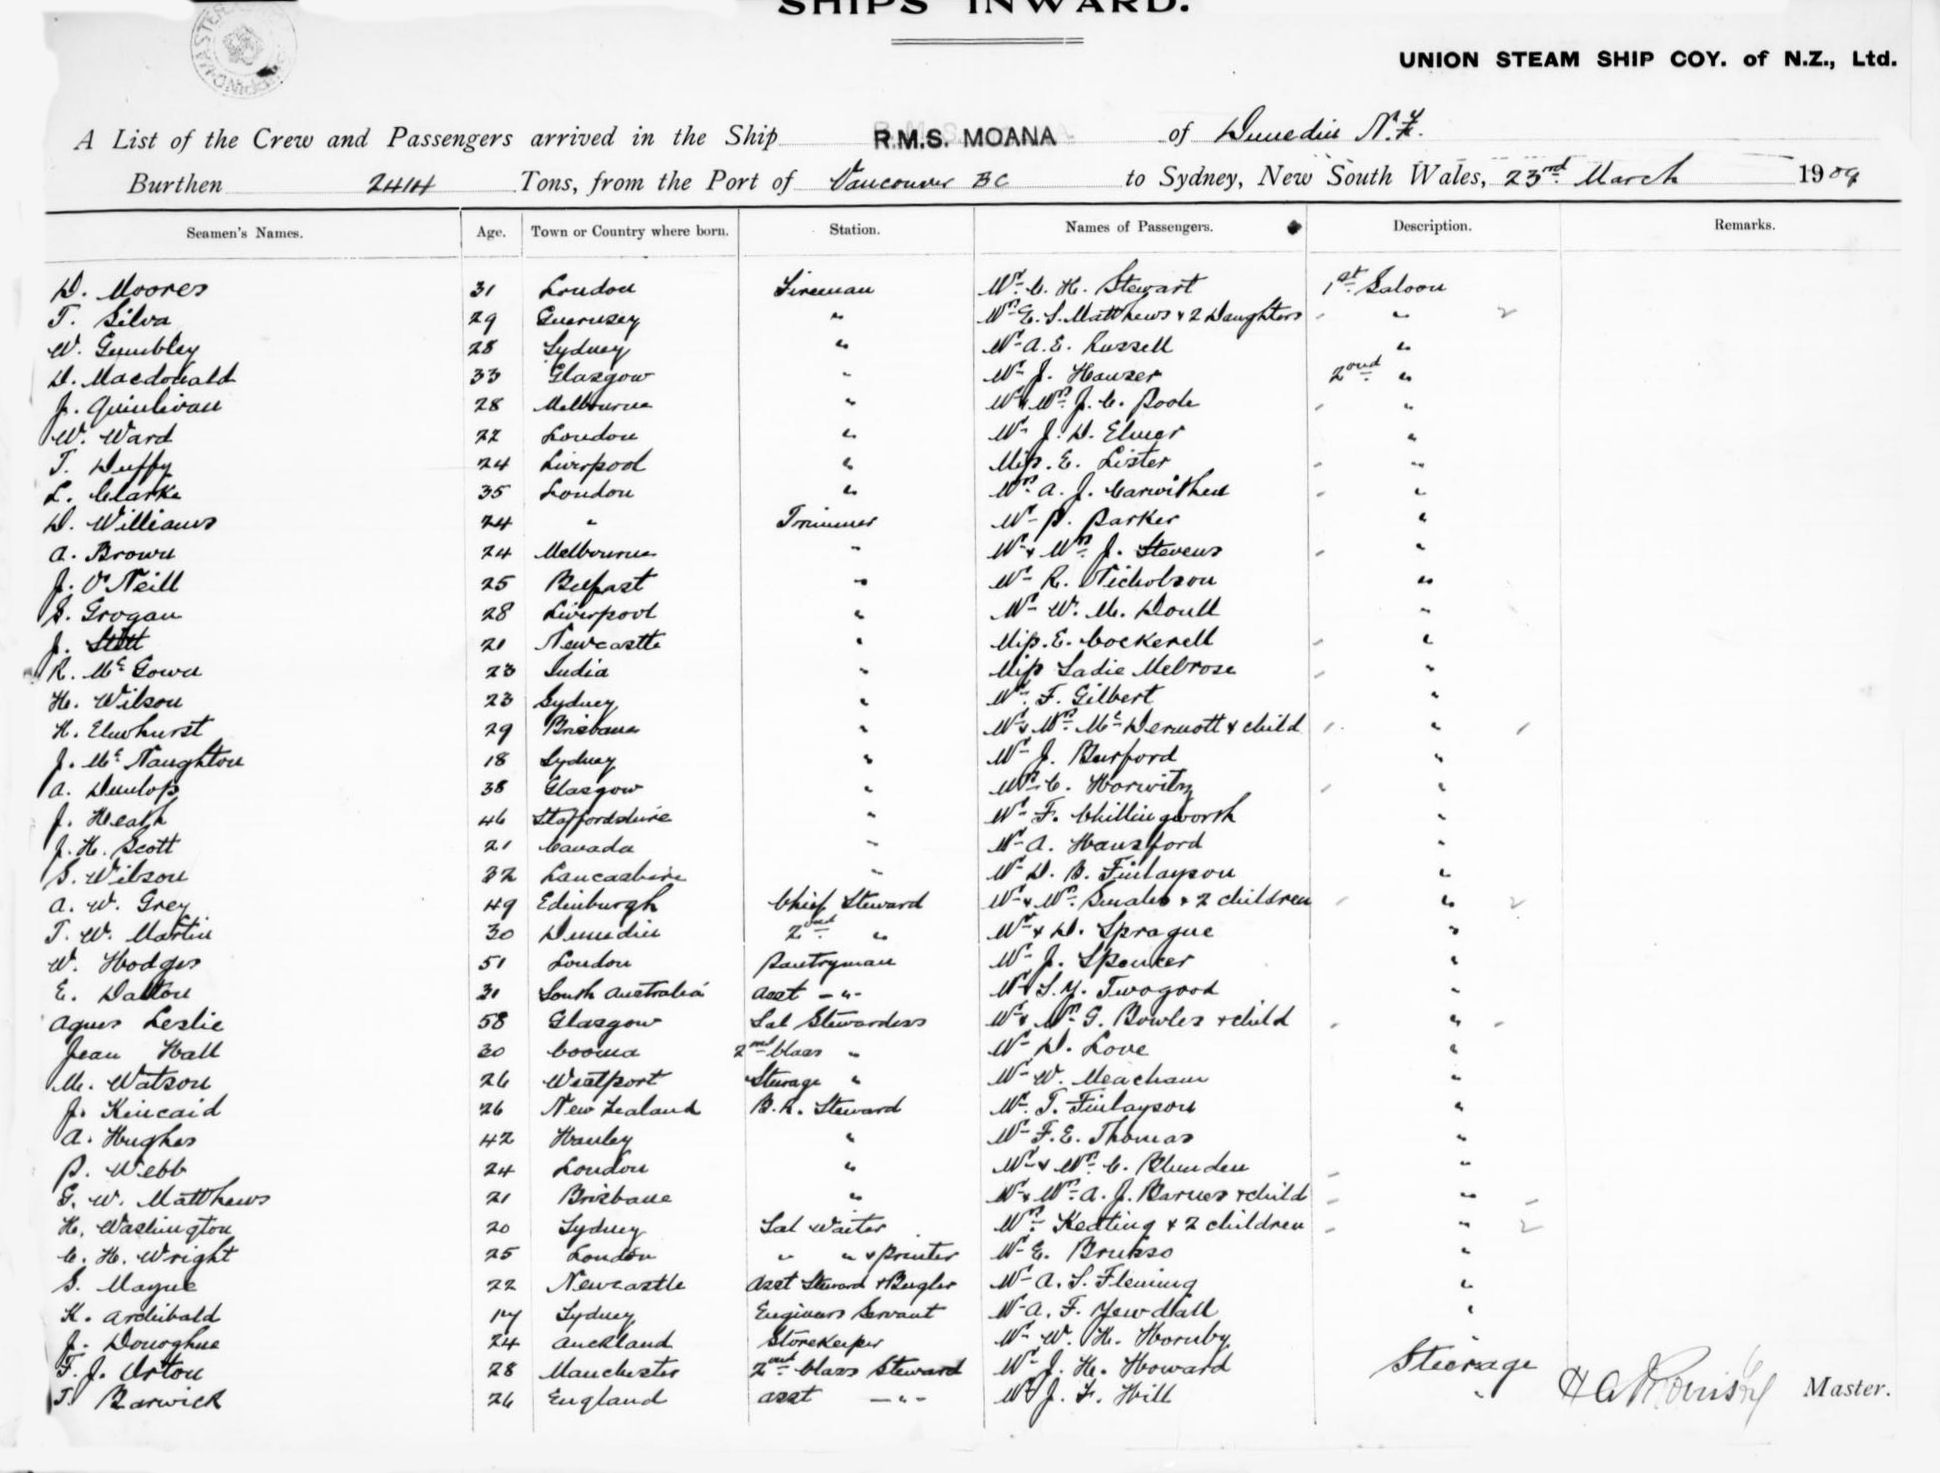 SHIPS INWARD.
UNION STEAM SHIP COY. of N.Z., Ltd.
A List of the Crew and Passengers arrived in the Ship R.M.S. MOANA of Dunedin N.Z.
Burthen 2414 Tons, from the Port of Vancouver BC to Sydney, New South Wales, 23rd March 1909
Seamen's Names. Age. Town or Country where born. Station. Names of Passengers. Description. Remarks.
D. Moores 31 London Fireman Mr. C. H. Stewart 1st Saloon
T. Silva 29 Guernsey " Mrs E. S. Matthews & 2 Daughters " 2
W. Gumbley 28 Sydney " Mr A. E. Russell "
D. Macdonald 33 Glasgow " Mr J. Hauser 2ond "
J. Quinlivan 28 Melbourne " Mr & Mrs J. C. Poole "
W. Ward 22 London " Mr J. D. Elmer "
T. Duffy 24 Liverpool " Miss. E. Lister "
L. Clarke 35 London " Mrs A. J. Carwithen "
D. Williams 24 " Trimmer Mr P. Parker "
A. Brown 24 Melbourne " Mr & Mrs J. Stevens "
J. O'Neill 25 Belfast " Mr R. Nicholson "
S. Grogan 28 Liverpool " Mr W. M. Doull "
J. Stott 21 Newcastle " Miss. E. Cockerell "
R. McGown 23 India " Miss Sadie Melrose "
H. Wilson 23 Sydney " Mr. F. Gilbert "
H. Elmhurst 29 Brisbane " Mr & Mrs McDermott & child "
J. McNaughton 18 Sydney " Mr J. Burford "
A. Dunlop 38 Glasgow " Mrs C. Horwitz "
J. Heath 46 Staffordshire " Mr F. Chillingworth "
J. H. Scott 21 Canada " Mr A. Hansford "
S. Wilson 32 Lancashire " Mr D. B. Finlayson "
A. W. Grey 49 Edinburgh Chief Steward Mr & Mrs Smales & 2 children " 2
T. W. Martin 30 Dunedin 2nd " Mr & D. Sprague "
W. Hodges 51 London Pantryman Mr J. Spencer "
E. Dalton 31 South Australia Asst - " - Mr S. Y. Twogood "
Agnes Leslie 58 Glasgow Sal Stewardess Mr & Mrs G. Bowles & child "
Jean Hall 30 Cooma 2nd Class " Mr D. Love "
M. Watson 26 Westport Sturage " Mr W. Meacham "
J. Kincaid 26 New Zealand B. R. Steward Mr. T. Finlayson "
A. Hughes 42 Hanley " Mr F. E. Thomas "
P. Webb 24 London " Mr & Mrs C. Blunden "
G. W. Matthews 21 Brisbane " Mr & Mrs A. J. Barnes & child "
H. Washington 20 Sydney Sal Waiter Mrs Keating & 2 children " 2
C. H. Wright 25 London " " & Printer Mr E. Brusso "
S. Mayne 22 Newcastle Asst Steward & Bugler Mr A. S. Fleming "
K. Archibald 17 Sydney Engineers Servant Mr A. F. Yewdall "
J. Donoghue 24 Auckland Storekeeper Mr W. H. Hornby "
F. J. Orton 28 Manchester 2ond Class Steward Mr J. H. Howard Steerage
T. Barwick 26 England Asst - " - Mr J. F. Hill " Master.